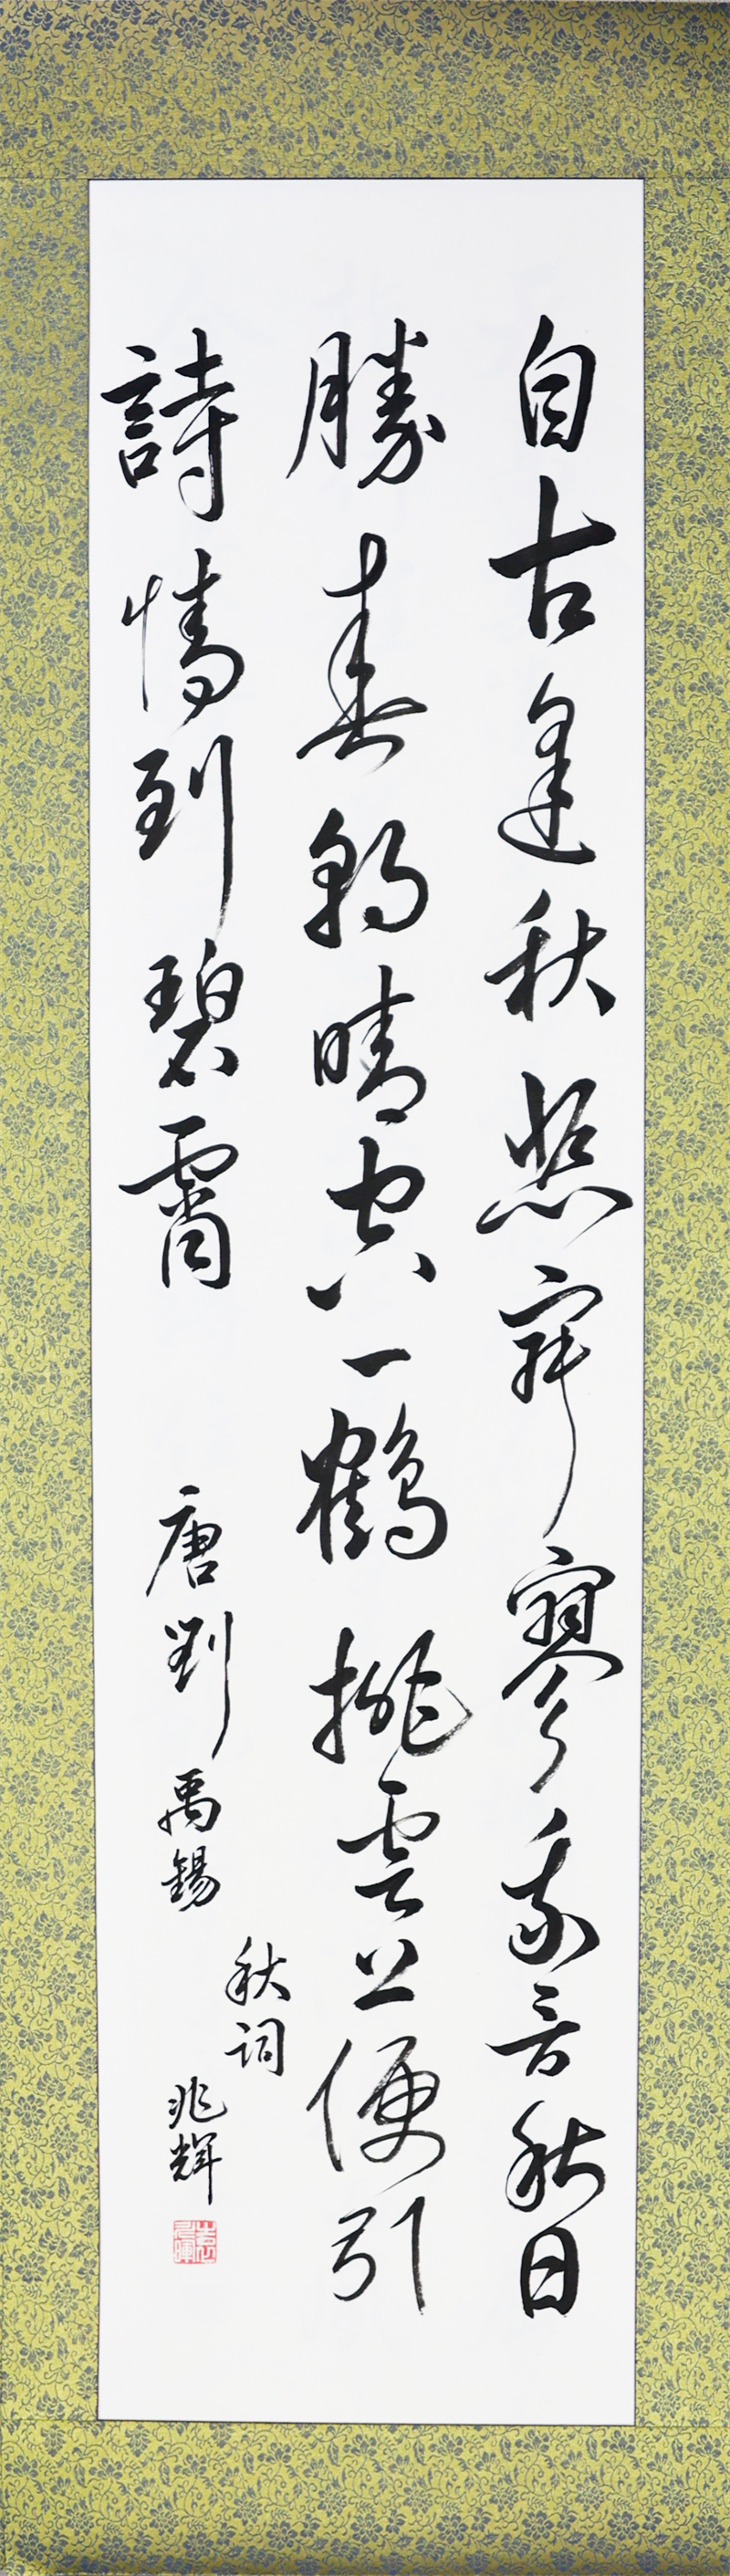 自古逢秋悲寂寥我言秋日
勝春朝晴空一鶴排雲上便引
詩情到碧霄 唐劉禹錫
秋詞
兆輝